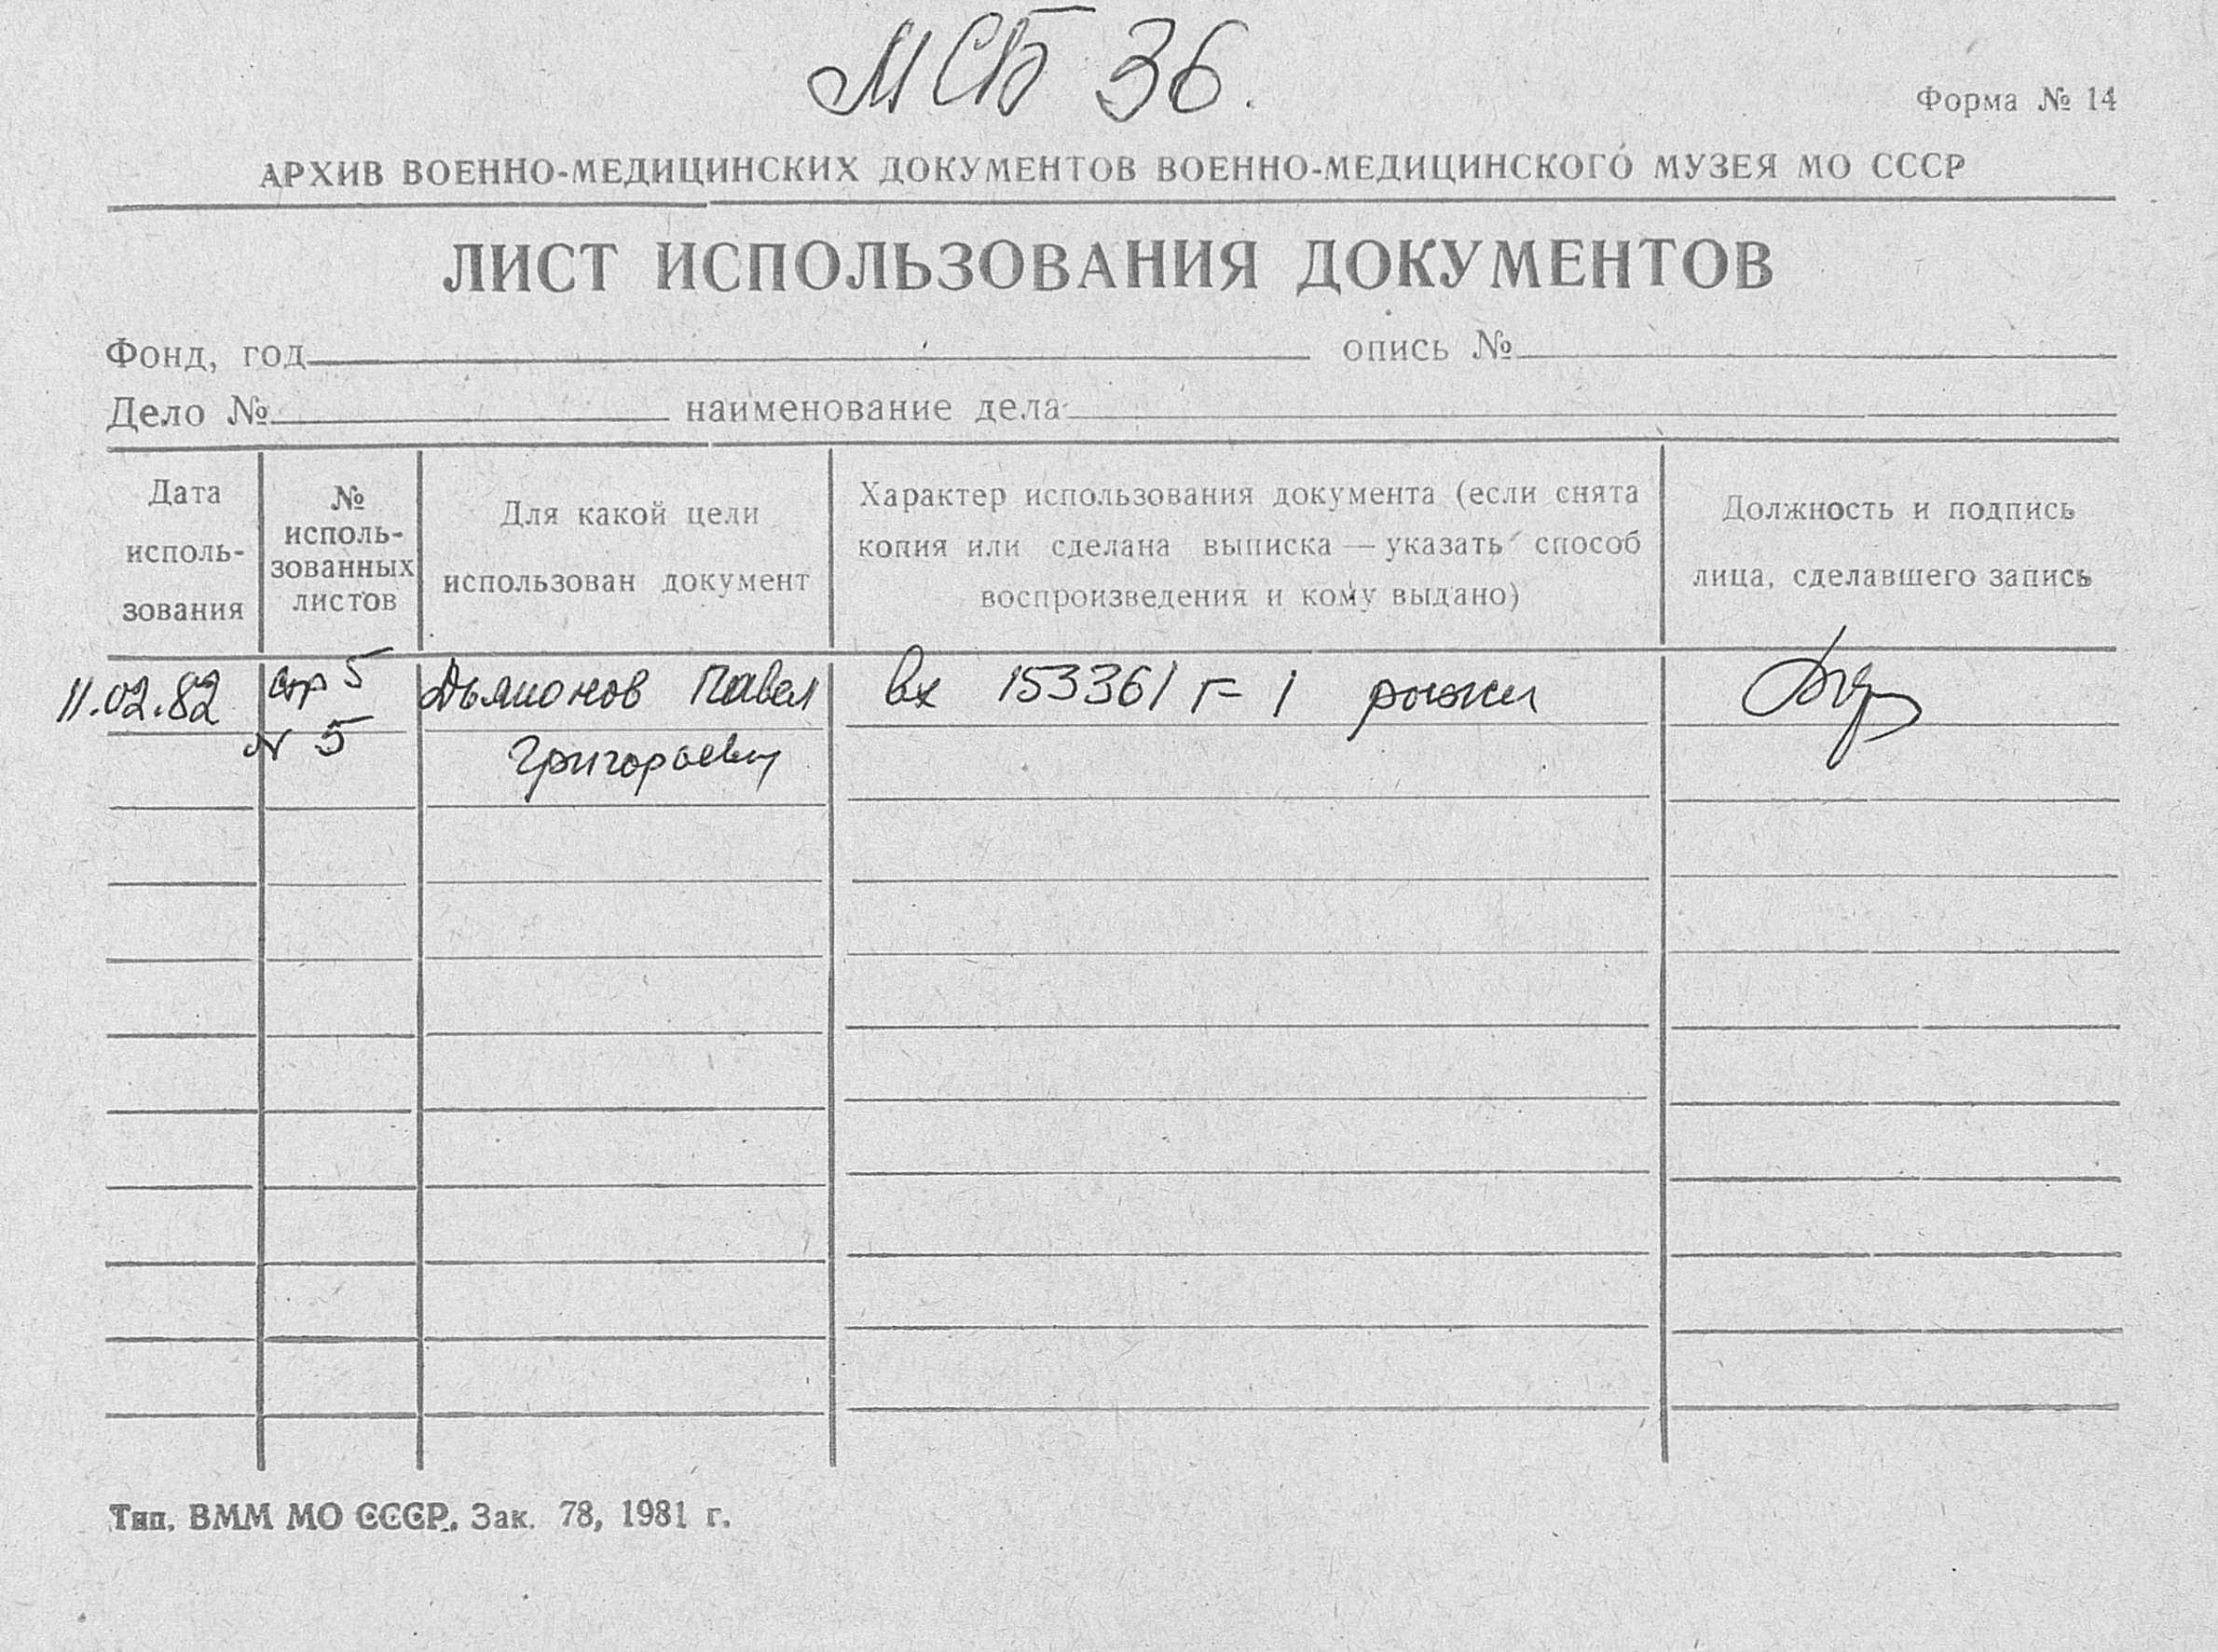 МСБ 36.
Форма № 14
АРХИВ ВОЕННО-МЕДИЦИНСКИХ ДОКУМЕНТОВ ВОЕННО-МЕДИЦИНСКОГО МУЗЕЯ МО СССР
ЛИСТ ИСПОЛЬЗОВАНИЯ ДОКУМЕНТОВ
Фонд, год опись №
Дело № наименование дела
Дата
исполь-
зования
№
исполь-
зованных
листов
Для какой цели
использован документ
Характер использования документа (если снята
копия или сделана выписка — указать способ
воспроизведения и кому выдано)
Должность и подпись
лица, сделавшего запись
11.02.82
стр 5
N 5
Павел
Григорьевич
Вх 153361 г- 1
Тип. ВММ МО СССР. Зак. 78, 1981 г.